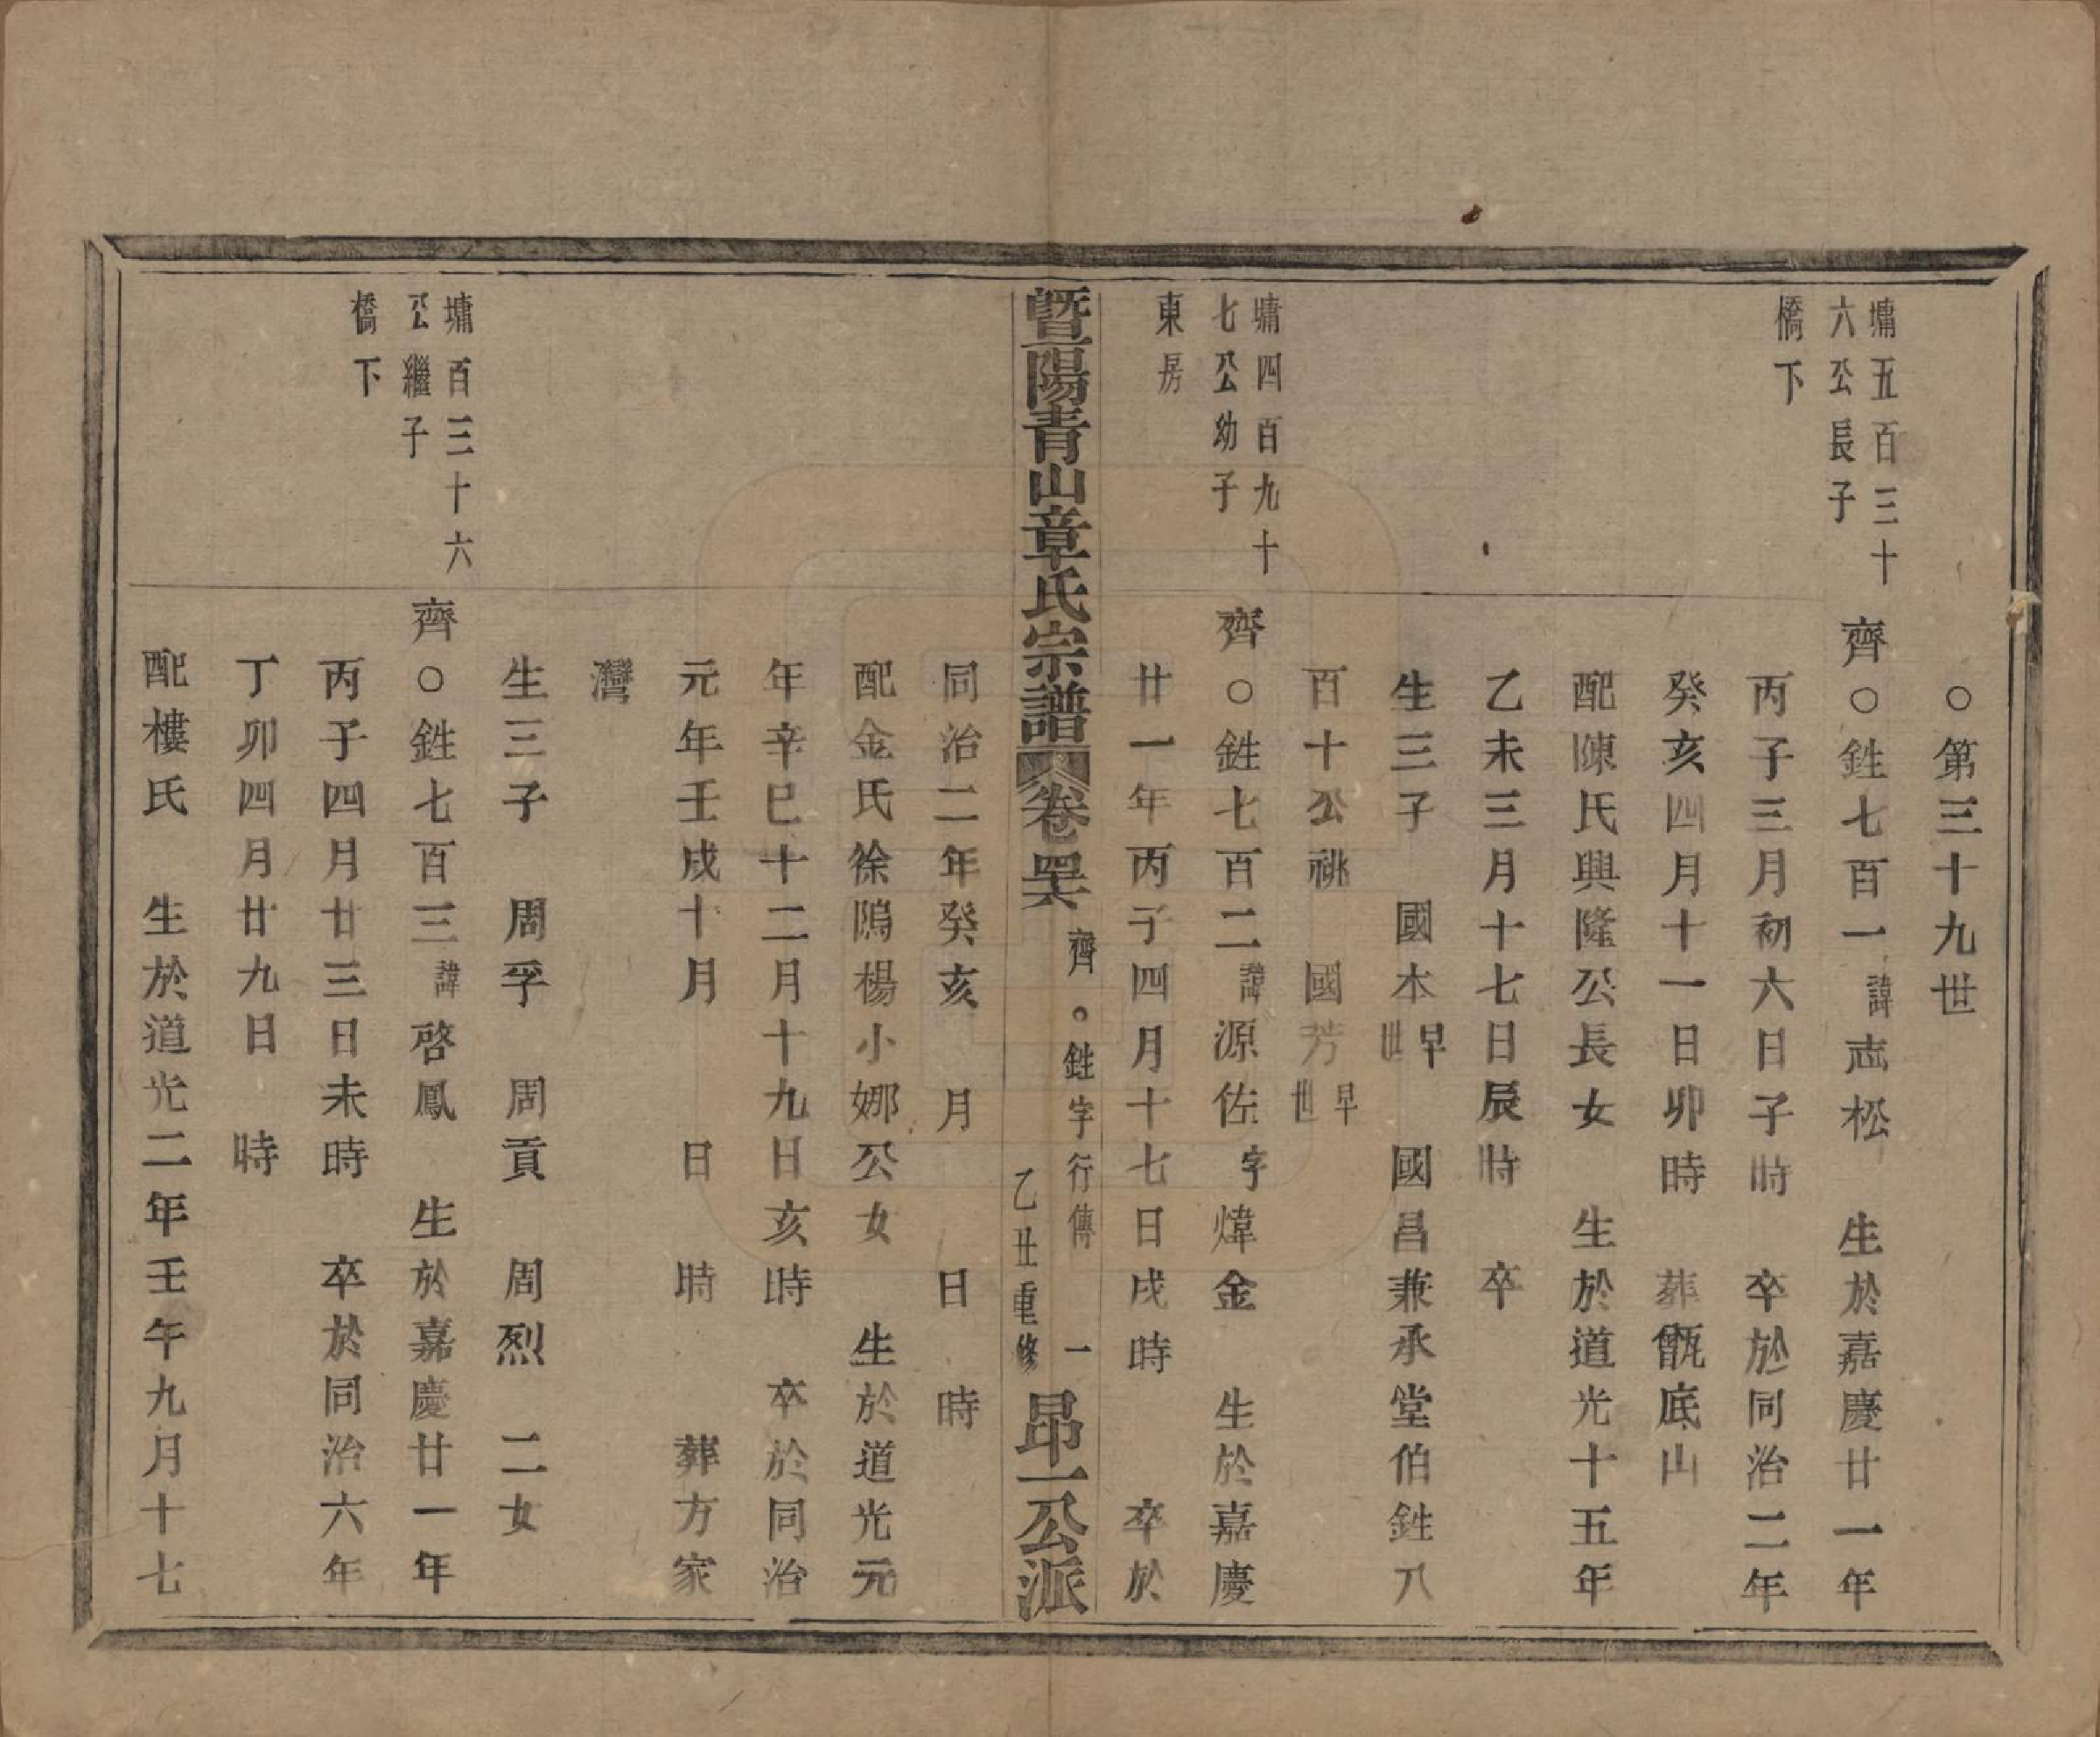 ○第三十九世
墉五百三十
六公長子
橋下
齊○鉎七百一諱志松　生於嘉慶廿一年
丙子三月初六日子時　卒於同治二年
癸亥四月十一日卯時　葬甑底山
配陳氏興隆公長女　生於道光十五年
乙未三月十七日辰時　卒
生三子　國本早世　國昌兼承堂伯鉎八
百十公祧　國芳早世
墉四百九十
七公幼子
東房
齊○鉎七百二諱源佐字煒金　生於嘉慶
廿一年丙子四月十七日戌時　卒於
暨陽青山章氏宗譜　卷四六　齊○鉎字行傳　一　乙丑重修　昂一公派
同治二年癸亥　月　日　時
配金氏徐隝楊小娜公女　生於道光元
年辛巳十二月十九日亥時　卒於同治
元年壬戌十月　日　時　葬方家
灣
生三子　周孚　周貢　周烈　二女
墉百三十六
公繼子
橋下
齊○鉎七百三諱啓鳳　生於嘉慶廿一年
丙子四月廿三日未時　卒於同治六年
丁卯四月廿九日　時
配樓氏　生於道光二年壬午九月十七